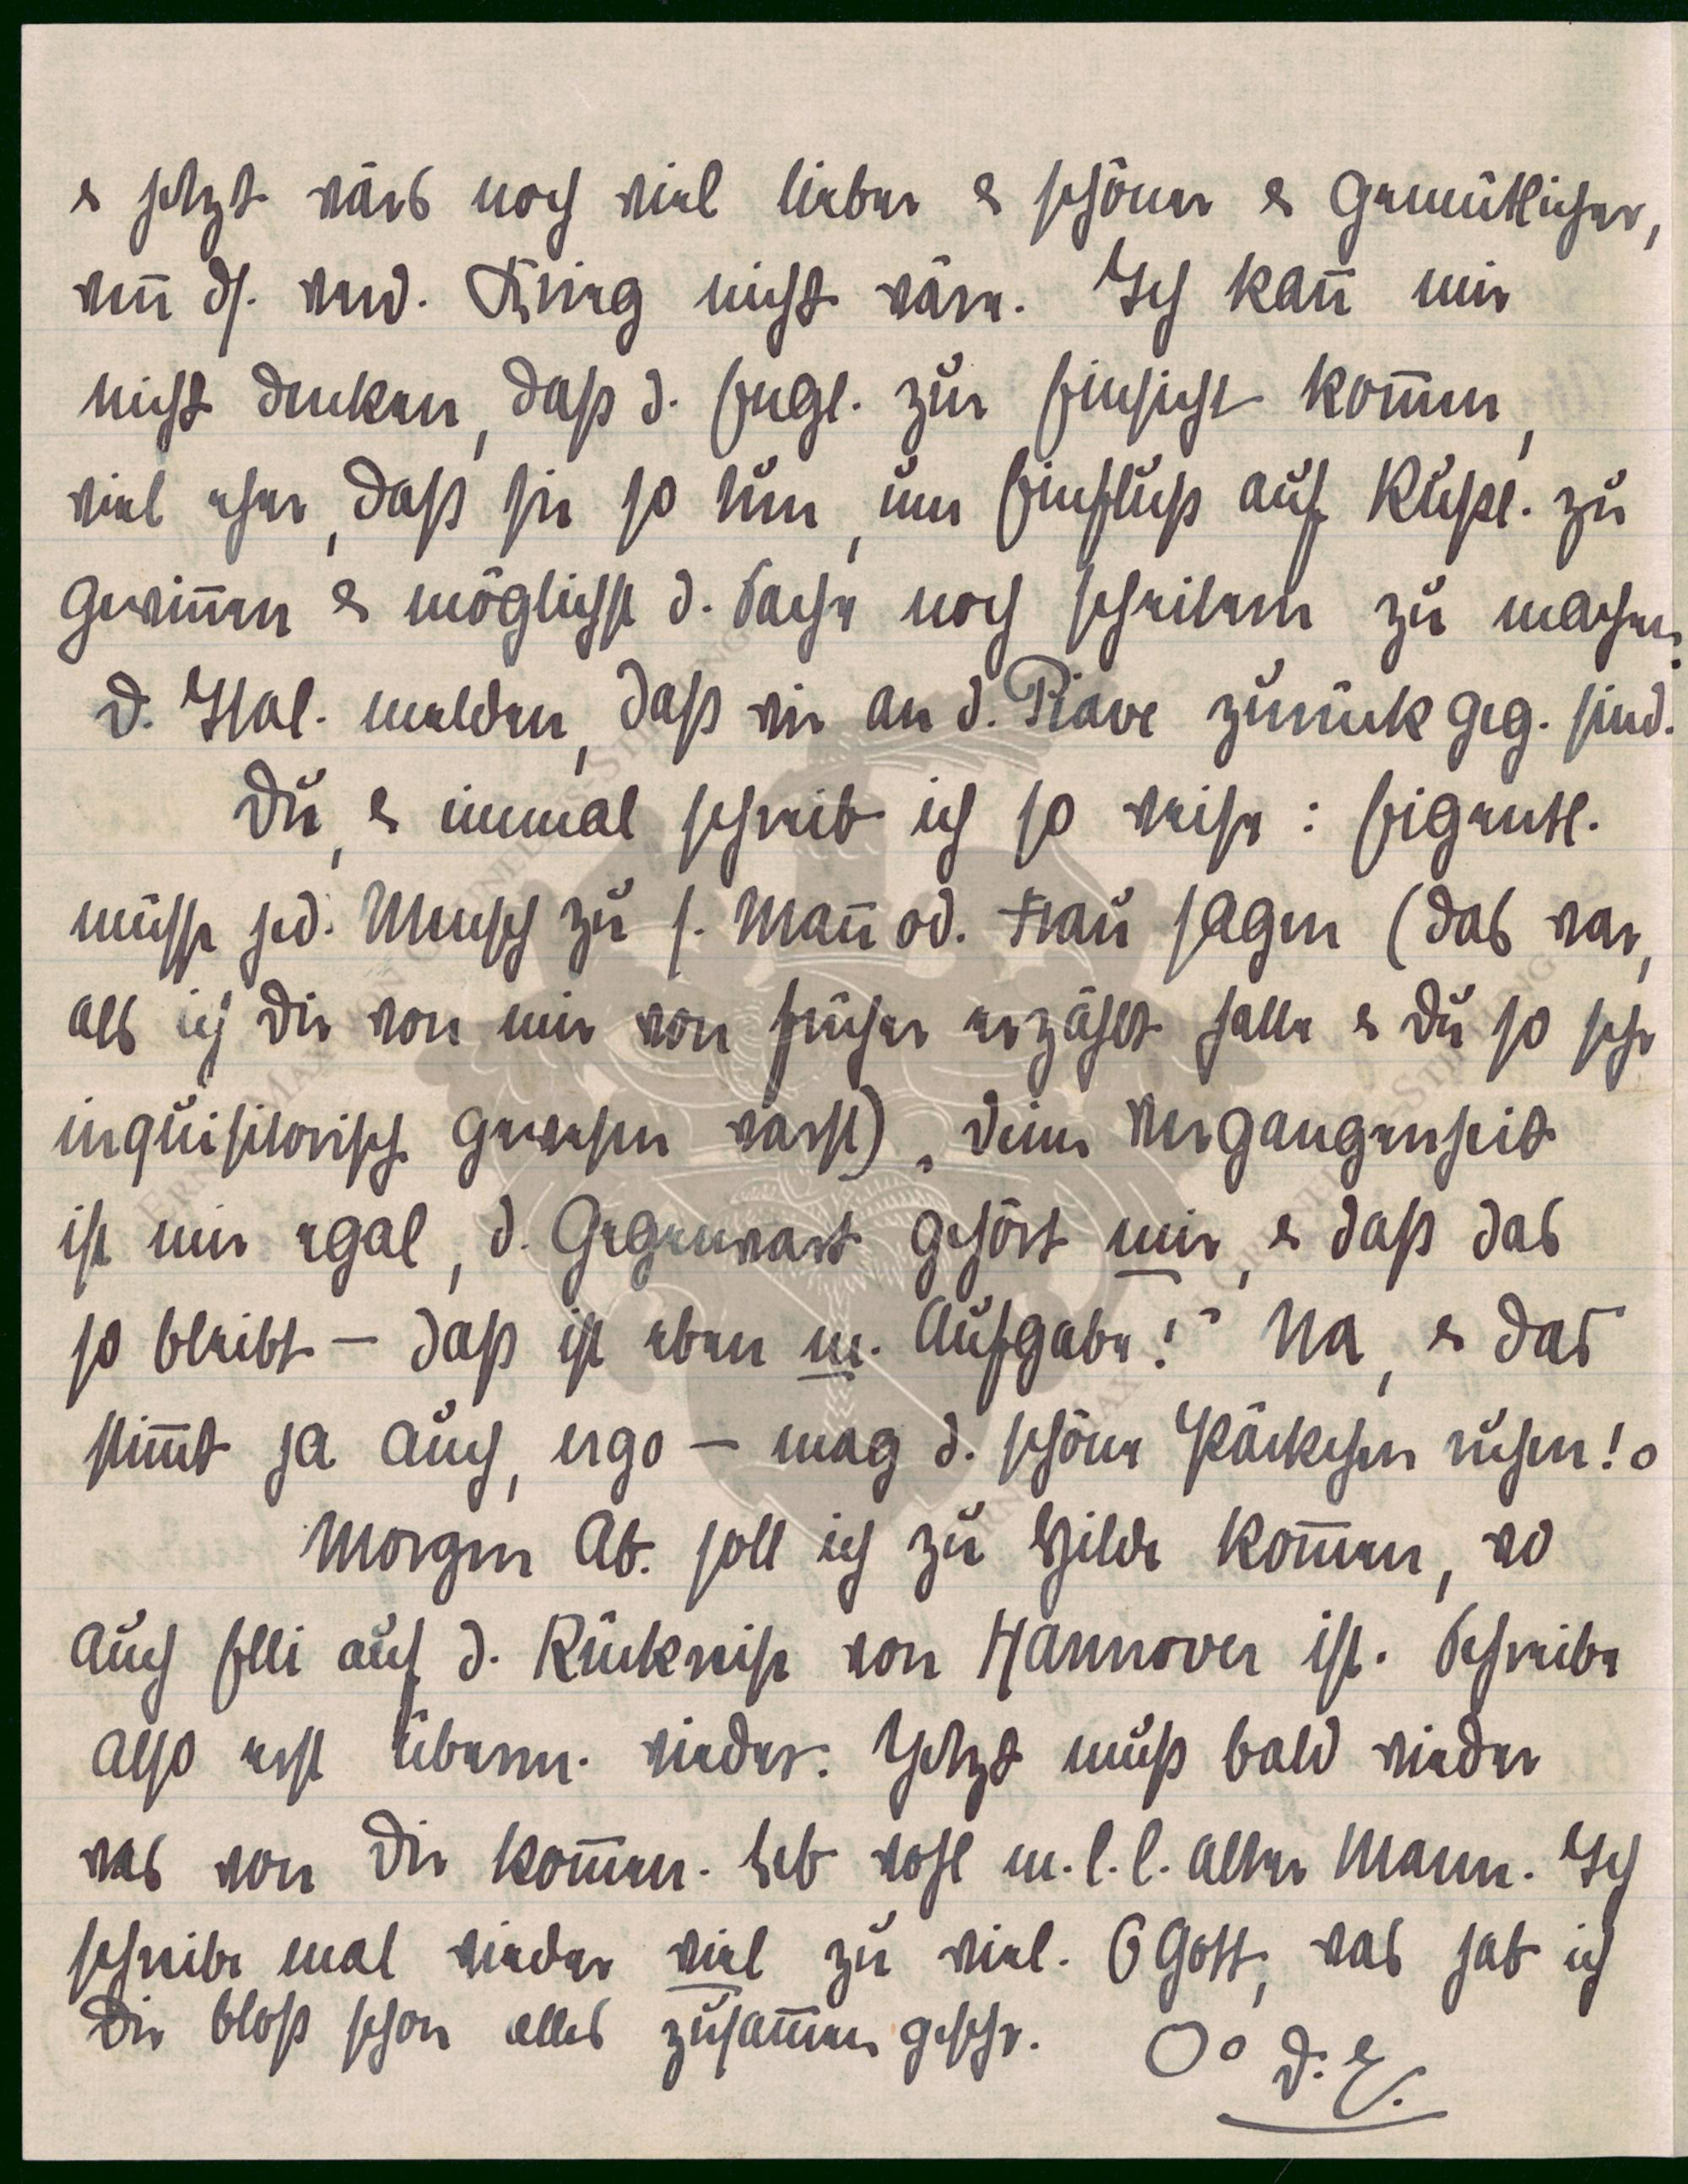 & jetzt wärs noch viel lieber & schöner & gemütlicher,
wen̄ ds. verd. Krieg nicht wäre. Ich kan̄ mir
nicht denken, daß d. Engl. zur Einsicht kom̄en,
viel eher, daß sie so tun, um Einfluß auf Rußl. zu
gewin̄en & möglichst d. Sache noch schlimmer zu machen.
D. Ital. melden, daß wir an d. Piave zurück geg. sind.
Du, & immal schreib ich so weise: Eigentl.
müsse jed. Mensch zu s. Man̄ od. Frau sagen (das war,
als ich Dir von mir von früher erzählt hatte & Du so sehr
inquisitorisch gewesen warst) „Deine Vergangenheit
ist mir egal, d. Gegenwart gehört mir, & daß das
so bleibt – daß ist eben m. Aufgabe!“ Na, & das
stim̄t ja auch, ergo – mag d. schöne Päckchen ruhen! o
Morgen Ab. soll ich zu Hilde kom̄en, wo
auch Elli auf d. Rückreise von Hannover ist. Schreibe
also erst überm. wieder. Jetzt muß bald wieder
was von Dir kom̄en. Leb wohl m. l. l. alter Mann. Ich
schreibe mal wieder viel zu viel. O Gott, was hab ich
Dir bloß schon alles zusam̄en geschr. Oo D. E.
ERNST MAX VON GRUNELIUS-STIFTUNG